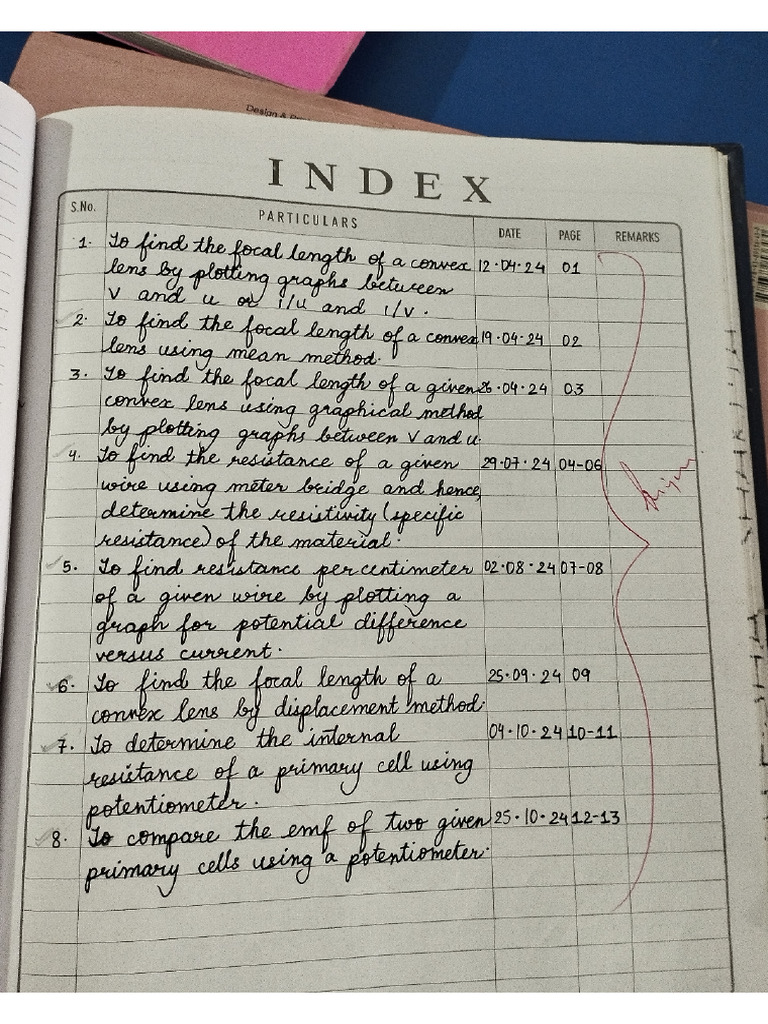 Design &
INDEX
S.No. PARTICULARS DATE PAGE REMARKS
1. To find the focal length of a convex 12.04.24 01
lens by plotting graphs between
v and u or 1/u and 1/v.
2. To find the focal length of a convex 19.04.24 02
lens using mean method.
3. To find the focal length of a given 26.04.24 03
convex lens using graphical method
by plotting graphs between v and u.
4. To find the resistance of a given 29.07.24 04-06
wire using meter bridge and hence
determine the resistivity (specific
resistance) of the material.
5. To find resistance per centimeter 02.08.24 07-08
of a given wire by plotting a
graph for potential difference
versus current.
6. To find the focal length of a 25.09.24 09
convex lens by displacement method.
7. To determine the internal 04.10.24 10-11
resistance of a primary cell using
potentiometer.
8. To compare the emf of two given 25.10.24 12-13
primary cells using a potentiometer.